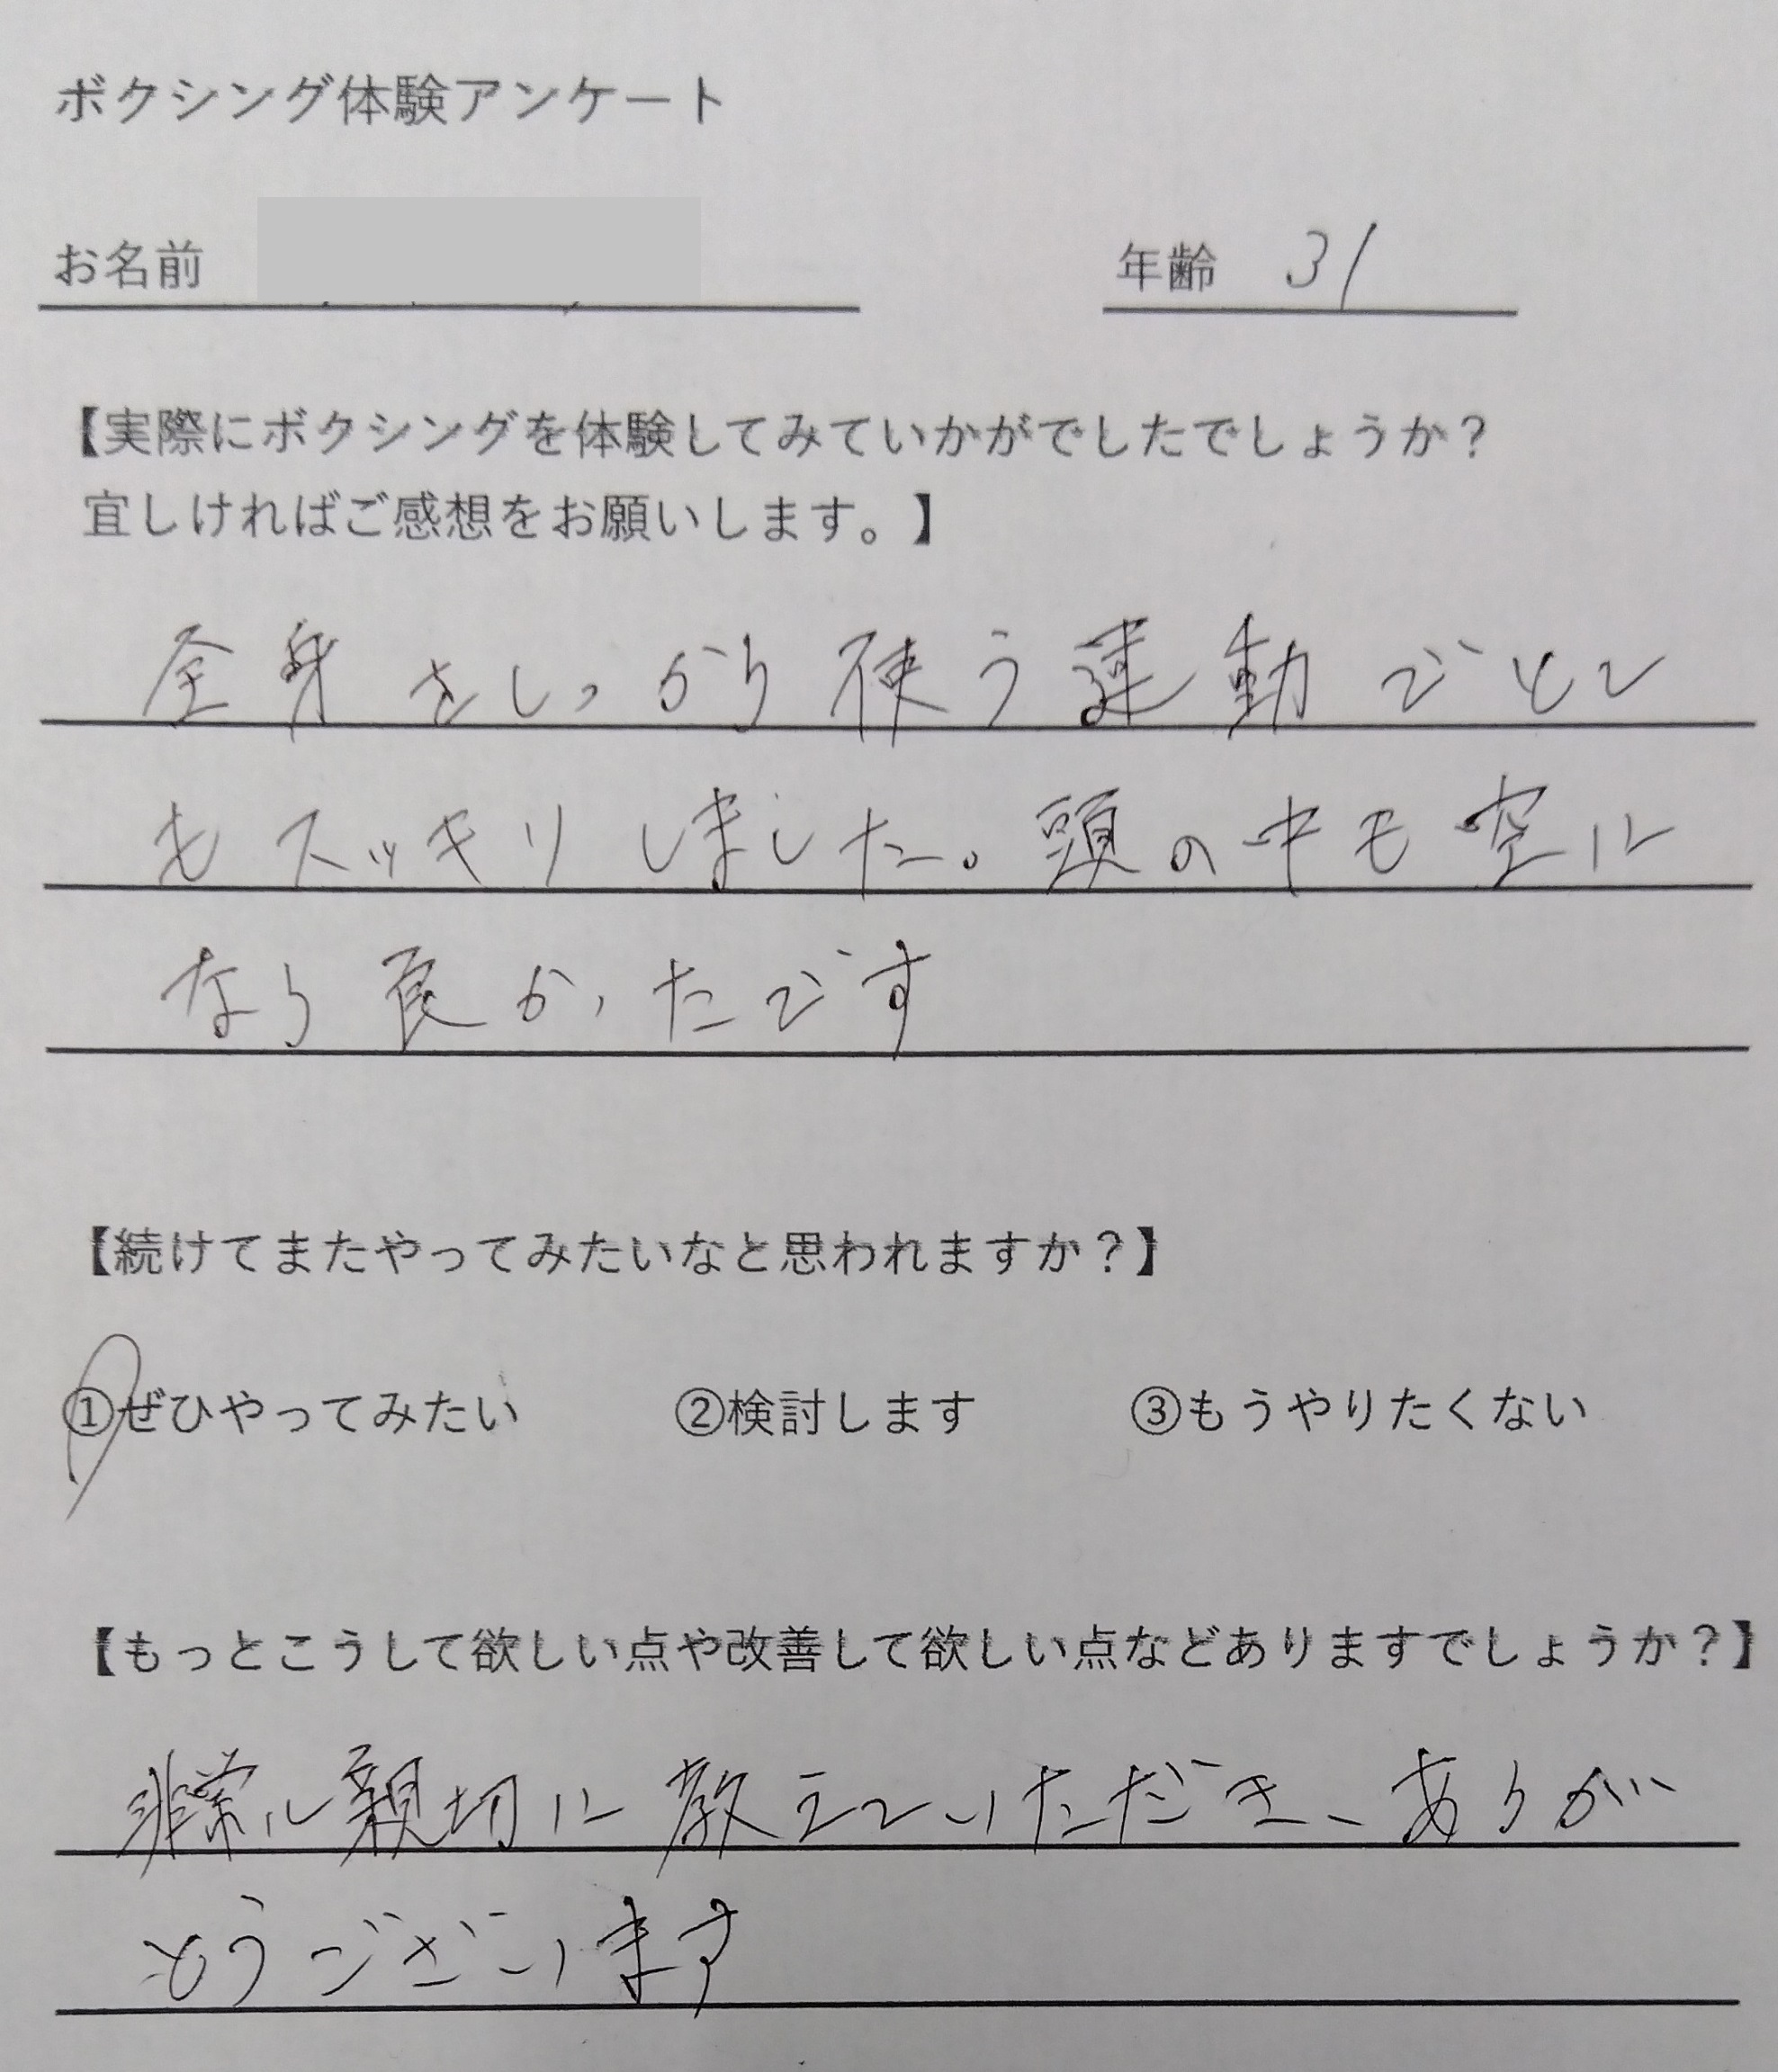 ボクシング体験アンケート
お名前 年齢 31
【実際にボクシングを体験してみていかがでしたでしょうか？
宜しければご感想をお願いします。】
全身をしっかり使う運動でとて
もスッキリしました。頭の中も空に
なり良かったです
【続けてまたやってみたいなと思われますか？】
①ぜひやってみたい ②検討します ③もうやりたくない
【もっとこうして欲しい点や改善して欲しい点などありますでしょうか？】
非常に親切に教えていただき、ありが
とうございます